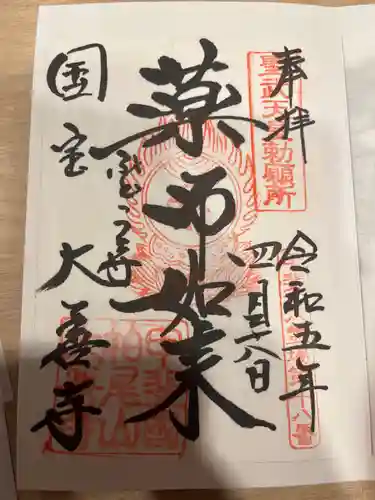 奉拝
聖武天皇勅願所
令和五年
四月十八日
薬師如来
ぶどう寺
国宝 大善寺
柏尾山